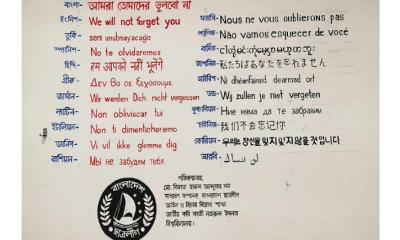 বাংলা- আমরা তোমাদের ভুলবো না
ইংলিশ- We will not forget you
তুর্কি- seni unutmayacağız
স্প্যানিশ- No te olvidaremos
হিন্দি- हम आपको नहीं भूलेंगे
গ্রীক- Δεν θα σε ξεχάσουμε
জার্মান- Wir werden Dich nicht vergessen
ল্যাটিন- Non obliviscar tui
ইটালিয়ান- Non ti dimenticheremo
ডানিশ- Vi vil ikke glemme dig
রাশিয়ান- Мы не забудем тебя
ফরাসি- Nous ne vous oublierons pas
পর্তুগিজ- Não vamos esquecer de você
বার্মিজ-
জাপানিজ- 私たちはあなたを忘れません
আইরিশ- Ní dhéanfaimid dearmad ort
ডাচ- Wij zullen je niet vergeten
বুলগেরিয়ান- Ние няма да те забравим
চাইনিজ- 我们不会忘记你
কোরিয়ান- 우리는 당신을 잊지 않을 것입니다
আরবি- لن ننساك
পরিকল্পনায়,
সাধারণ সম্পাদক, বাংলাদেশ ছাত্রলীগ
আইন ও বিচার বিভাগ শাখা
জাতীয় কবি কাজী নজরুল ইসলাম
বিশ্ববিদ্যালয়।
বাংলাদেশ
ছাত্রলীগ